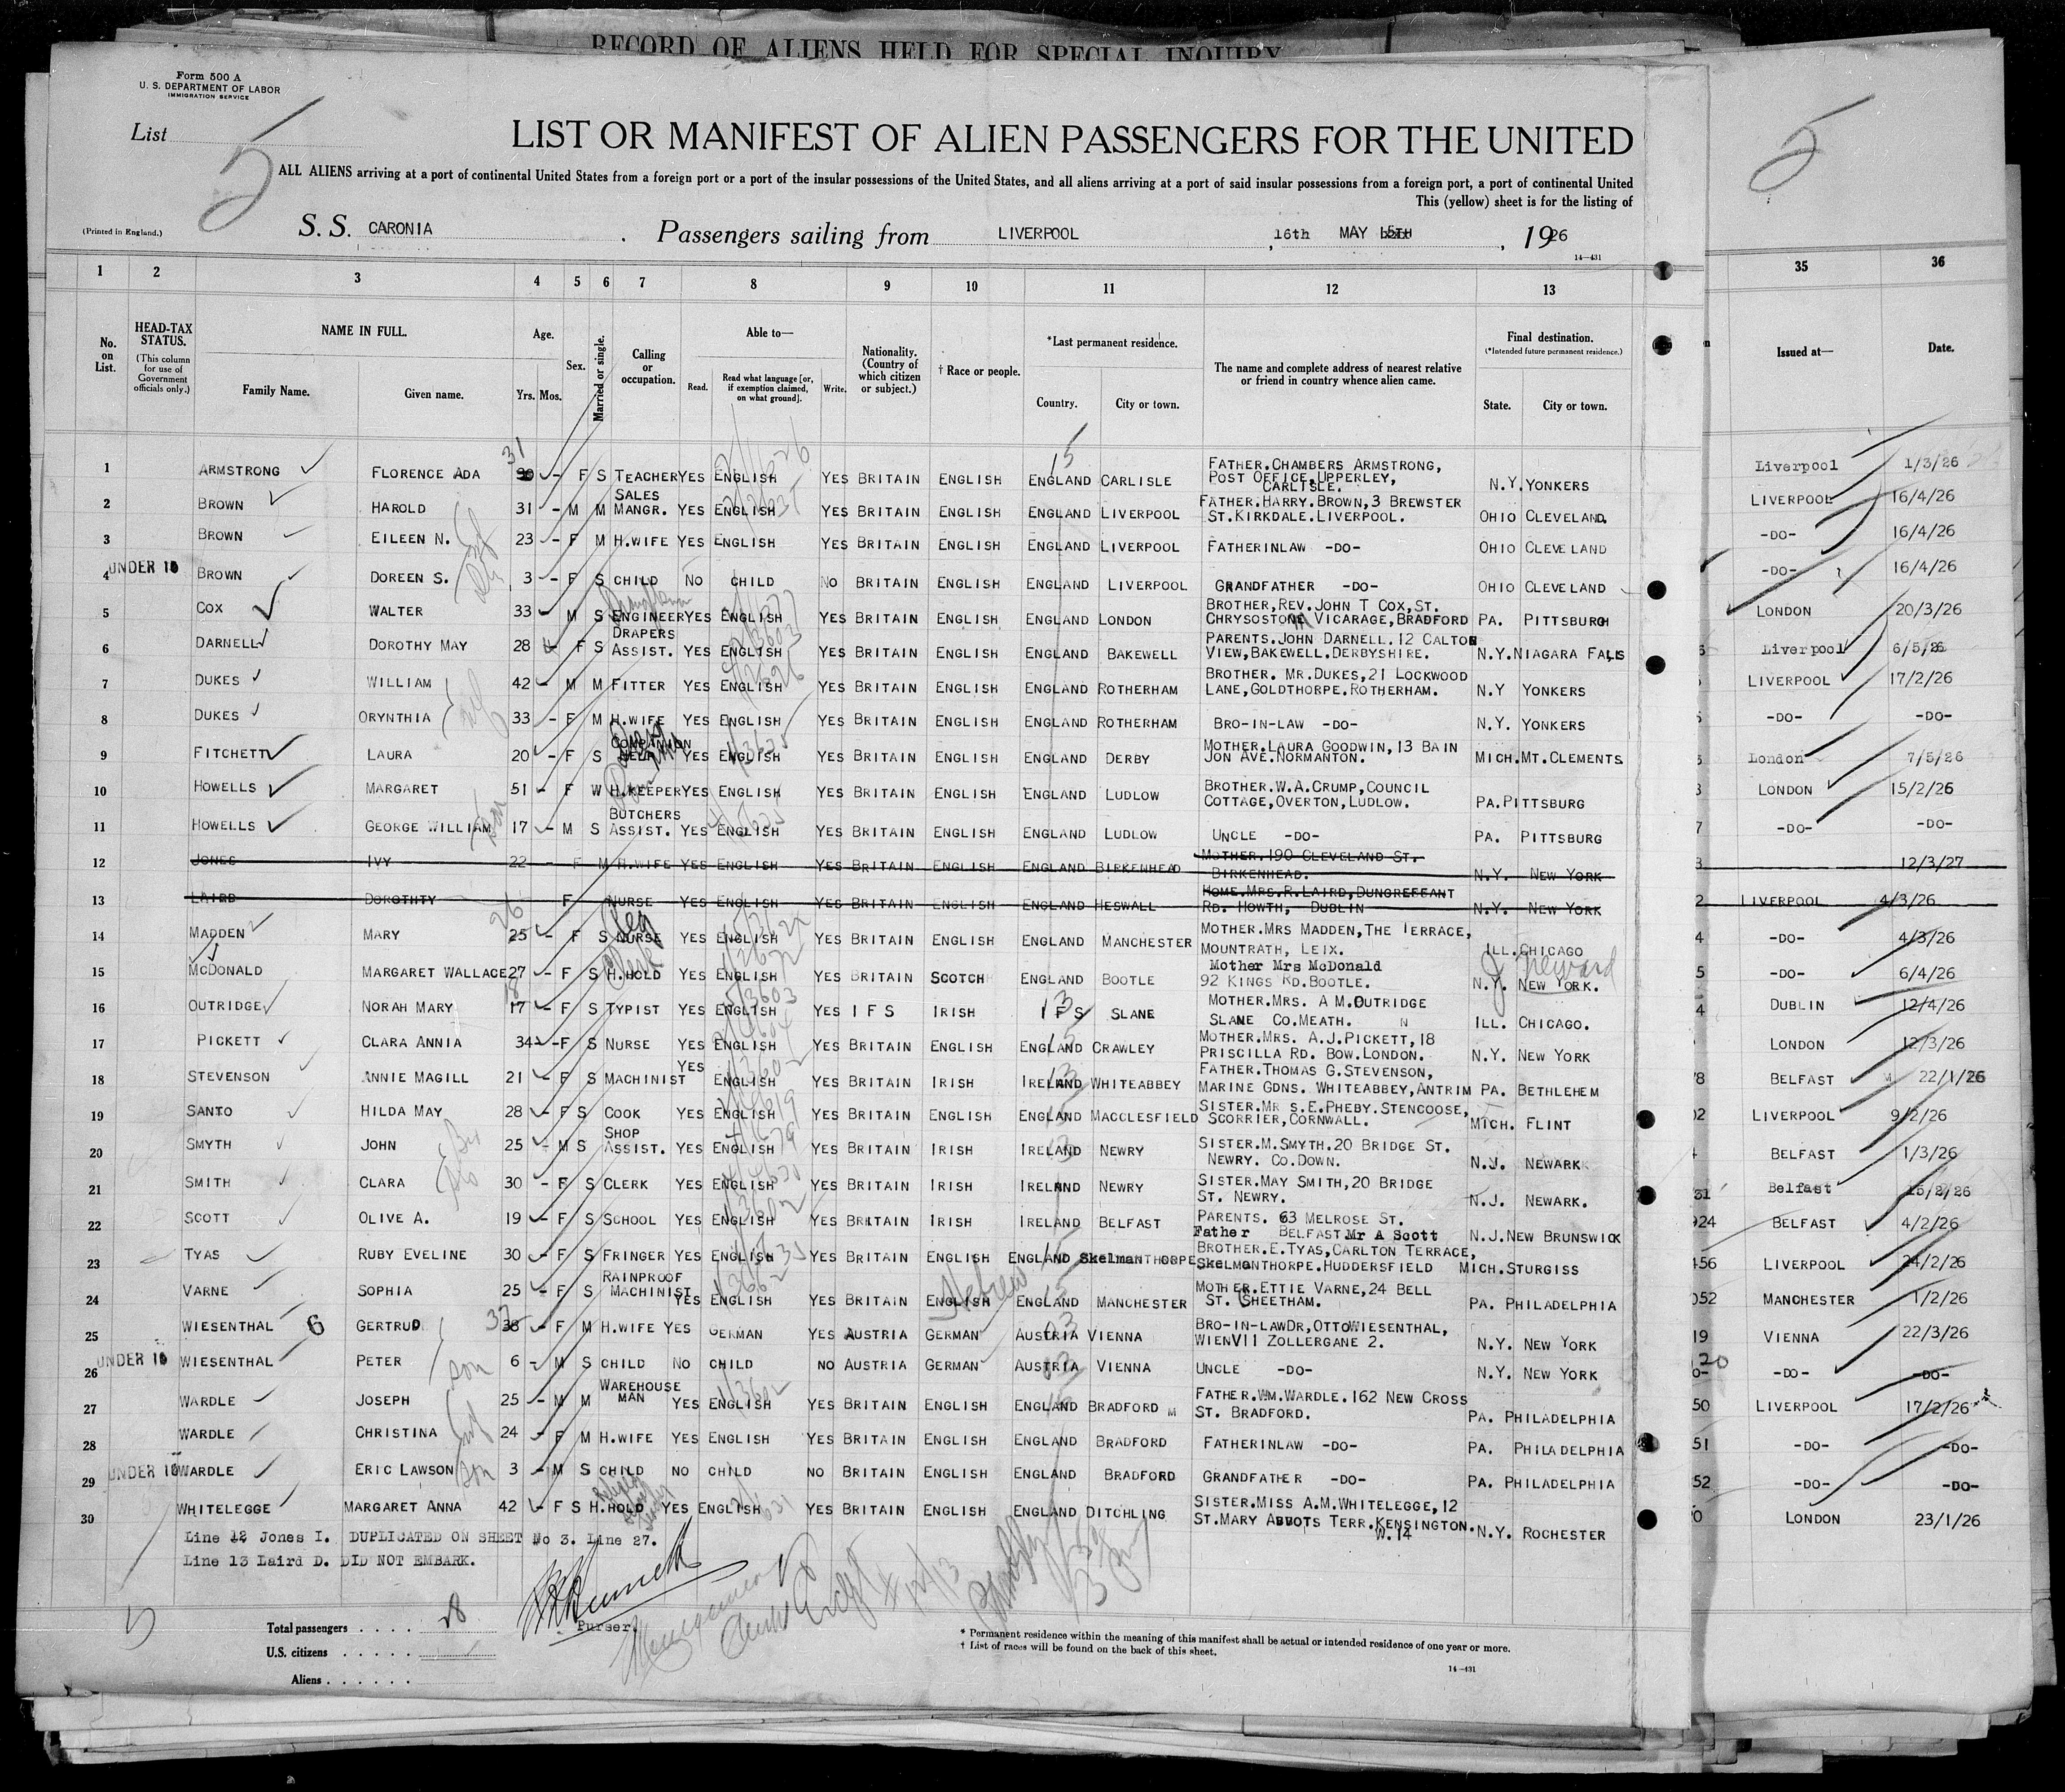 RECORD OF ALIENS HELD FOR SPECIAL INQUIRY
Form 500 A
U. S. DEPARTMENT OF LABOR
IMMIGRATION SERVICE
List 5
5
LIST OR MANIFEST OF ALIEN PASSENGERS FOR THE UNITED
ALL ALIENS arriving at a port of continental United States from a foreign port or a port of the insular possessions of the United States, and all aliens arriving at a port of said insular possessions from a foreign port, a port of continental United
This (yellow) sheet is for the listing of
(Printed in England.)
S. S. CARONIA . Passengers sailing from LIVERPOOL , 16th MAY 15TH , 1926
14—431
1 2 3 4 5 6 7 8 9 10 11 12 13 35 36
No. on List.
HEAD-TAX STATUS.
(This column for use of Government officials only.)
NAME IN FULL.
Family Name. Given name.
Age.
Yrs. Mos.
Sex.
Married or single.
Calling or occupation.
Able to—
Read. Read what language [or, if exemption claimed, on what ground]. Write.
Nationality. (Country of which citizen or subject.)
† Race or people.
*Last permanent residence.
Country. City or town.
The name and complete address of nearest relative or friend in country whence alien came.
Final destination.
(*Intended future permanent residence.)
State. City or town.
Issued at— Date.
1 ARMSTRONG FLORENCE ADA 31 - F S TEACHER YES ENGLISH YES BRITAIN ENGLISH ENGLAND CARLISLE FATHER.CHAMBERS ARMSTRONG, POST OFFICE,UPPERLEY, CARLISLE. N.Y. YONKERS Liverpool 1/3/26
2 BROWN HAROLD 31 - M M SALES MANGR. YES ENGLISH YES BRITAIN ENGLISH ENGLAND LIVERPOOL FATHER.HARRY.BROWN,3 BREWSTER ST.KIRKDALE.LIVERPOOL. OHIO CLEVELAND. LIVERPOOL 16/4/26
3 BROWN EILEEN N. 23 - F M H.WIFE YES ENGLISH YES BRITAIN ENGLISH ENGLAND LIVERPOOL FATHERINLAW -DO- OHIO CLEVELAND -DO- 16/4/26
UNDER 16
4 BROWN DOREEN S. 3 - F S CHILD NO CHILD NO BRITAIN ENGLISH ENGLAND LIVERPOOL GRANDFATHER -DO- OHIO CLEVELAND -DO- 16/4/26
5 COX WALTER 33 M S ENGINEER YES ENGLISH YES BRITAIN ENGLISH ENGLAND LONDON BROTHER,REV.JOHN T COX,ST. CHRYSOSTOM VICARAGE,BRADFORD PA. PITTSBURGH LONDON 20/3/26
6 DARNELL DOROTHY MAY 28 F S DRAPERS ASSIST. YES ENGLISH YES BRITAIN ENGLISH ENGLAND BAKEWELL PARENTS.JOHN DARNELL.12 CALTON VIEW,BAKEWELL.DERBYSHIRE. N.Y.NIAGARA FALLS Liverpool 6/5/26
7 DUKES WILLIAM 42 - M M FITTER YES ENGLISH YES BRITAIN ENGLISH ENGLAND ROTHERHAM BROTHER. MR.DUKES,21 LOCKWOOD LANE,GOLDTHORPE.ROTHERHAM. N.Y YONKERS LIVERPOOL 17/2/26
8 DUKES ORYNTHIA 33 - F M H.WIFE YES ENGLISH YES BRITAIN ENGLISH ENGLAND ROTHERHAM BRO-IN-LAW -DO- N.Y. YONKERS -DO- -DO-
9 FITCHETT LAURA 20 - F S COMPANION HELP YES ENGLISH YES BRITAIN ENGLISH ENGLAND DERBY MOTHER.LAURA GOODWIN,13 BAIN JON AVE.NORMANTON. MICH.MT.CLEMENTS London 7/5/26
10 HOWELLS MARGARET 51 - F W H.KEEPER YES ENGLISH YES BRITAIN ENGLISH ENGLAND LUDLOW BROTHER.W.A.CRUMP,COUNCIL COTTAGE,OVERTON,LUDLOW. PA.PITTSBURG LONDON 15/2/26
11 HOWELLS GEORGE WILLIAM 17 - M S BUTCHERS ASSIST. YES ENGLISH YES BRITAIN ENGLISH ENGLAND LUDLOW UNCLE -DO- PA. PITTSBURG -DO- -DO-
12 JONES IVY 22 - F M H.WIFE YES ENGLISH YES BRITAIN ENGLISH ENGLAND BIRKENHEAD MOTHER.190 CLEVELAND ST. BIRKENHEAD. N.Y. NEW YORK 12/3/27
13 LAIRD DOROTHTY F NURSE YES ENGLISH YES BRITAIN ENGLISH ENGLAND HESWALL HOME.MRS.R.LAIRD,DUNGREFFANT RD. HOWTH, DUBLIN N.Y. NEW YORK LIVERPOOL 4/3/26
14 MADDEN MARY 26 25 - F S NURSE YES ENGLISH YES BRITAIN ENGLISH ENGLAND MANCHESTER MOTHER.MRS MADDEN,THE TERRACE, MOUNTRATH, LEIX. ILL.CHICAGO -DO- 4/3/26
15 MCDONALD MARGARET WALLACE 27 - F S H.HOLD YES ENGLISH YES BRITAIN SCOTCH ENGLAND BOOTLE Mother Mrs McDonald 92 KINGS RD.BOOTLE. N.Y. NEW YORK. -DO- 6/4/26
16 OUTRIDGE NORAH MARY 18 17 - F S TYPIST YES ENGLISH YES I F S IRISH I F S SLANE MOTHER.MRS. A M.OUTRIDGE SLANE CO.MEATH. ILL. CHICAGO. DUBLIN 12/4/26
17 PICKETT CLARA ANNIA 34 - F S NURSE YES ENGLISH YES BRITAIN ENGLISH ENGLAND CRAWLEY MOTHER.MRS. A.J.PICKETT,18 PRISCILLA RD. BOW.LONDON. N.Y. NEW YORK LONDON 12/3/26
18 STEVENSON ANNIE MAGILL 21 - F S MACHINIST YES ENGLISH YES BRITAIN IRISH IRELAND WHITEABBEY FATHER.THOMAS G.STEVENSON, MARINE GDNS. WHITEABBEY,ANTRIM PA. BETHLEHEM BELFAST 22/1/26
19 SANTO HILDA MAY 28 - F S COOK YES ENGLISH YES BRITAIN ENGLISH ENGLAND MACCLESFIELD SISTER.MR S.E.PHEBY.STENCOOSE, SCORRIER,CORNWALL. MICH. FLINT LIVERPOOL 9/2/26
20 SMYTH JOHN 25 - M S SHOP ASSIST. YES ENGLISH YES BRITAIN IRISH IRELAND NEWRY SISTER.M.SMYTH.20 BRIDGE ST. NEWRY. CO.DOWN. N.J. NEWARK BELFAST 1/3/26
21 SMITH CLARA 30 - F S CLERK YES ENGLISH YES BRITAIN IRISH IRELAND NEWRY SISTER.MAY SMITH,20 BRIDGE ST. NEWRY. N.J. NEWARK. Belfast 15/2/26
22 SCOTT OLIVE A. 19 - F S SCHOOL YES ENGLISH YES BRITAIN IRISH IRELAND BELFAST PARENTS. 63 MELROSE ST. Father BELFAST Mr A Scott N.J.NEW BRUNSWICK BELFAST 4/2/26
23 TYAS RUBY EVELINE 30 - F S FRINGER YES ENGLISH YES BRITAIN ENGLISH ENGLAND SkelmanTHORPE BROTHER.E.TYAS,CARLTON TERRACE, SKELMANTHORPE.HUDDERSFIELD MICH.STURGISS LIVERPOOL 24/2/26
24 VARNE SOPHIA 25 - F S RAINPROOF MACHINIST YES ENGLISH YES BRITAIN ENGLISH Hebrew ENGLAND MANCHESTER MOTHER.ETTIE VARNE,24 BELL ST. CHEETHAM. PA. PHILADELPHIA MANCHESTER 1/2/26
25 WIESENTHAL 6 GERTRUD 37 38 - F M H.WIFE YES GERMAN YES AUSTRIA GERMAN AUSTRIA VIENNA BRO-IN-LAWDR,OTTOWIESENTHAL, WIENVII ZOLLERGANE 2. N.Y. NEW YORK VIENNA 22/3/26
UNDER 16
26 WIESENTHAL PETER son 6 - M S CHILD NO CHILD NO AUSTRIA GERMAN AUSTRIA VIENNA UNCLE -DO- N.Y. NEW YORK -DO- -DO-
27 WARDLE JOSEPH 25 - M M WAREHOUSE MAN YES ENGLISH YES BRITAIN ENGLISH ENGLAND BRADFORD FATHER.WM.WARDLE.162 NEW CROSS ST. BRADFORD. PA. PHILADELPHIA LIVERPOOL 17/2/26
28 WARDLE CHRISTINA 24 - F M H.WIFE YES ENGLISH YES BRITAIN ENGLISH ENGLAND BRADFORD FATHERINLAW -DO- PA. PHILADELPHIA -DO- -DO-
29 UNDER 16 WARDLE ERIC LAWSON son 3 - M S CHILD NO CHILD NO BRITAIN ENGLISH ENGLAND BRADFORD GRANDFATHER -DO- PA. PHILADELPHIA -DO- -DO-
30 WHITELEGGE MARGARET ANNA 42 - F S H.HOLD YES ENGLISH YES BRITAIN ENGLISH ENGLAND DITCHLING SISTER.MISS A.M.WHITELEGGE,12 ST.MARY ABBOTS TERR.KENSINGTON. W.14 N.Y. ROCHESTER LONDON 23/1/26
Line 12 Jones I. DUPLICATED ON SHEET No 3. Line 27.
Line 13 Laird D. DID NOT EMBARK.
Purser.
Total passengers . . . . 28
U.S. citizens . . . . .
Aliens . . . . . .
* Permanent residence within the meaning of this manifest shall be actual or intended residence of one year or more.
† List of races will be found on the back of this sheet.
14—431